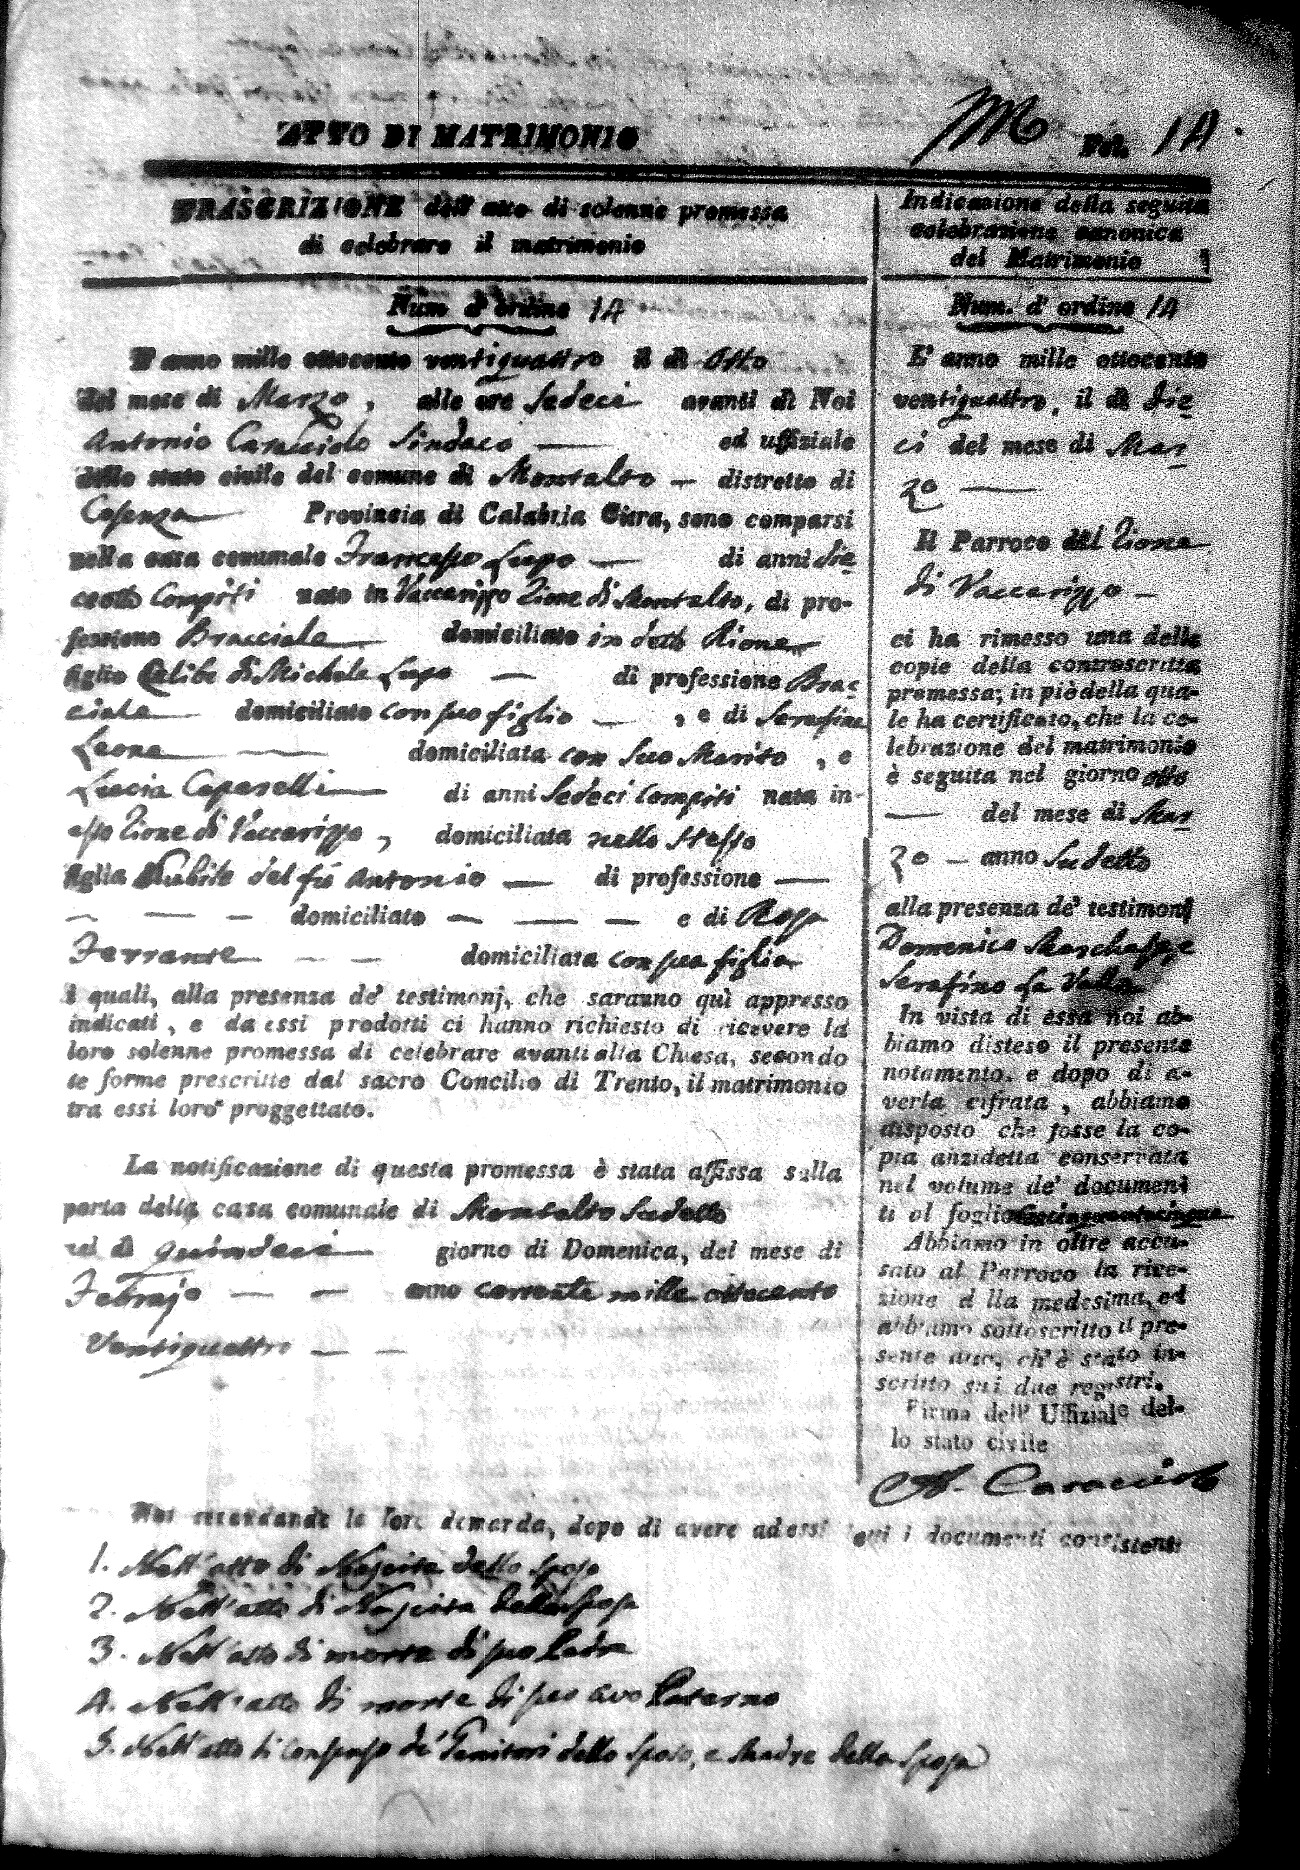 ATTO DI MATRIMONIO
M Fol. 14.
TRASCRIZIONE dell' atto di solenne promessa
di celebrare il matrimonio
Num. d' ordine 14
L' anno mille ottocento ventiquattro il dì Otto
del mese di Marzo, alle ore Sedeci avanti di Noi
Antonio Caracciolo Sindaco ed uffiziale
dello stato civile del comune di Montalto — distretto di
Cosenza Provincia di Calabria Citra, sono comparsi
nella casa comunale Francesco Lupo — di anni die
ciotto Compiti nato in Vaccarizzo Rione di Montalto, di pro-
fessione Bracciale domiciliato in detto Rione
figlio Celibe di Michele Lupo — di professione Brac
ciale domiciliato con suo figlio — , e di Serafina
Leone domiciliata con Suo Marito , e
Lucia Caparelli di anni Sedeci Compiti nata in
esso Rione di Vaccarizzo, domiciliata nello stesso
figlia Nubile del fù Antonio — di professione —
— — — domiciliato — — — e di Rosa
Ferrante — — — domiciliata con sua figlia
i quali, alla presenza de' testimonj, che saranno quì appresso
indicati, e da essi prodotti ci hanno richiesto di ricevere la
loro solenne promessa di celebrare avanti alla Chiesa, secondo
le forme prescritte dal sacro Concilio di Trento, il matrimonio
tra essi loro proggettato.
La notificazione di questa promessa è stata affissa sulla
porta della casa comunale di Montalto Sudetto
nel dì quindeci giorno di Domenica, del mese di
Febrajo — — anno corrente mille ottocento
Ventiquattro — —
Indicazione della seguita
celebrazione canonica
del Matrimonio
Num. d' ordine 14
L' anno mille ottocento
ventiquattro, il dì die
ci del mese di Mar
zo —
Il Parroco del Rione
di Vaccarizzo —
ci ha rimesso una delle
copie della controscritta
promessa; in piè della qua-
le ha certificato, che la ce-
lebrazione del matrimonio
è seguita nel giorno otto
— del mese di Mar
zo — anno Sudetto
alla presenza de' testimonj
Domenico
Serafino La Valle
In vista di essa noi ab-
biamo disteso il presente
notamento, e dopo di a-
verla cifrata, abbiamo
disposto che fosse la co-
pia anzidetta conservata
nel volume de' documen
ti al foglio
Abbiamo in oltre accu-
sato al Parroco la rice-
zione della medesima, ed
abbiamo sottoscritto il pre-
sente atto, ch' è stato in-
scritto sui due registri.
Firma dell' Uffiziale del-
lo stato civile
A. Caracciolo
Noi secondando la loro domanda, dopo di avere ad essi letti i documenti consistenti
1. Nell'atto di Nascita dello sposo
2. Nell'atto di Nascita della sposa
3. Nell'atto di morte di suo Padre
4. Nell'atto di morte di suo avo Paterno
5. Nell'atto di consenso de' Genitori dello sposo, e Madre della sposa